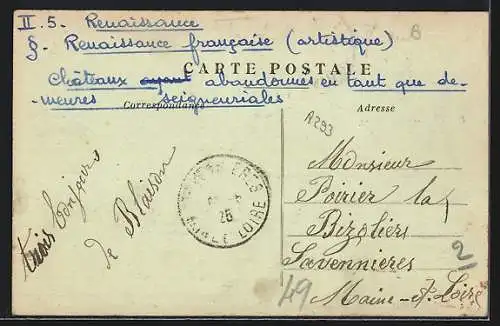 II.5. Renaissance
§. Renaissance française (artistique)
Châteaux ayant abandonnés en tant que de-
-meures seigneuriales
CARTE POSTALE
Correspondance
Adresse
A293
B
de Blaison
25
LOIRE
Monsieur
Poirier la
Bizolière
Savennières
Maine-et-Loire
2
49